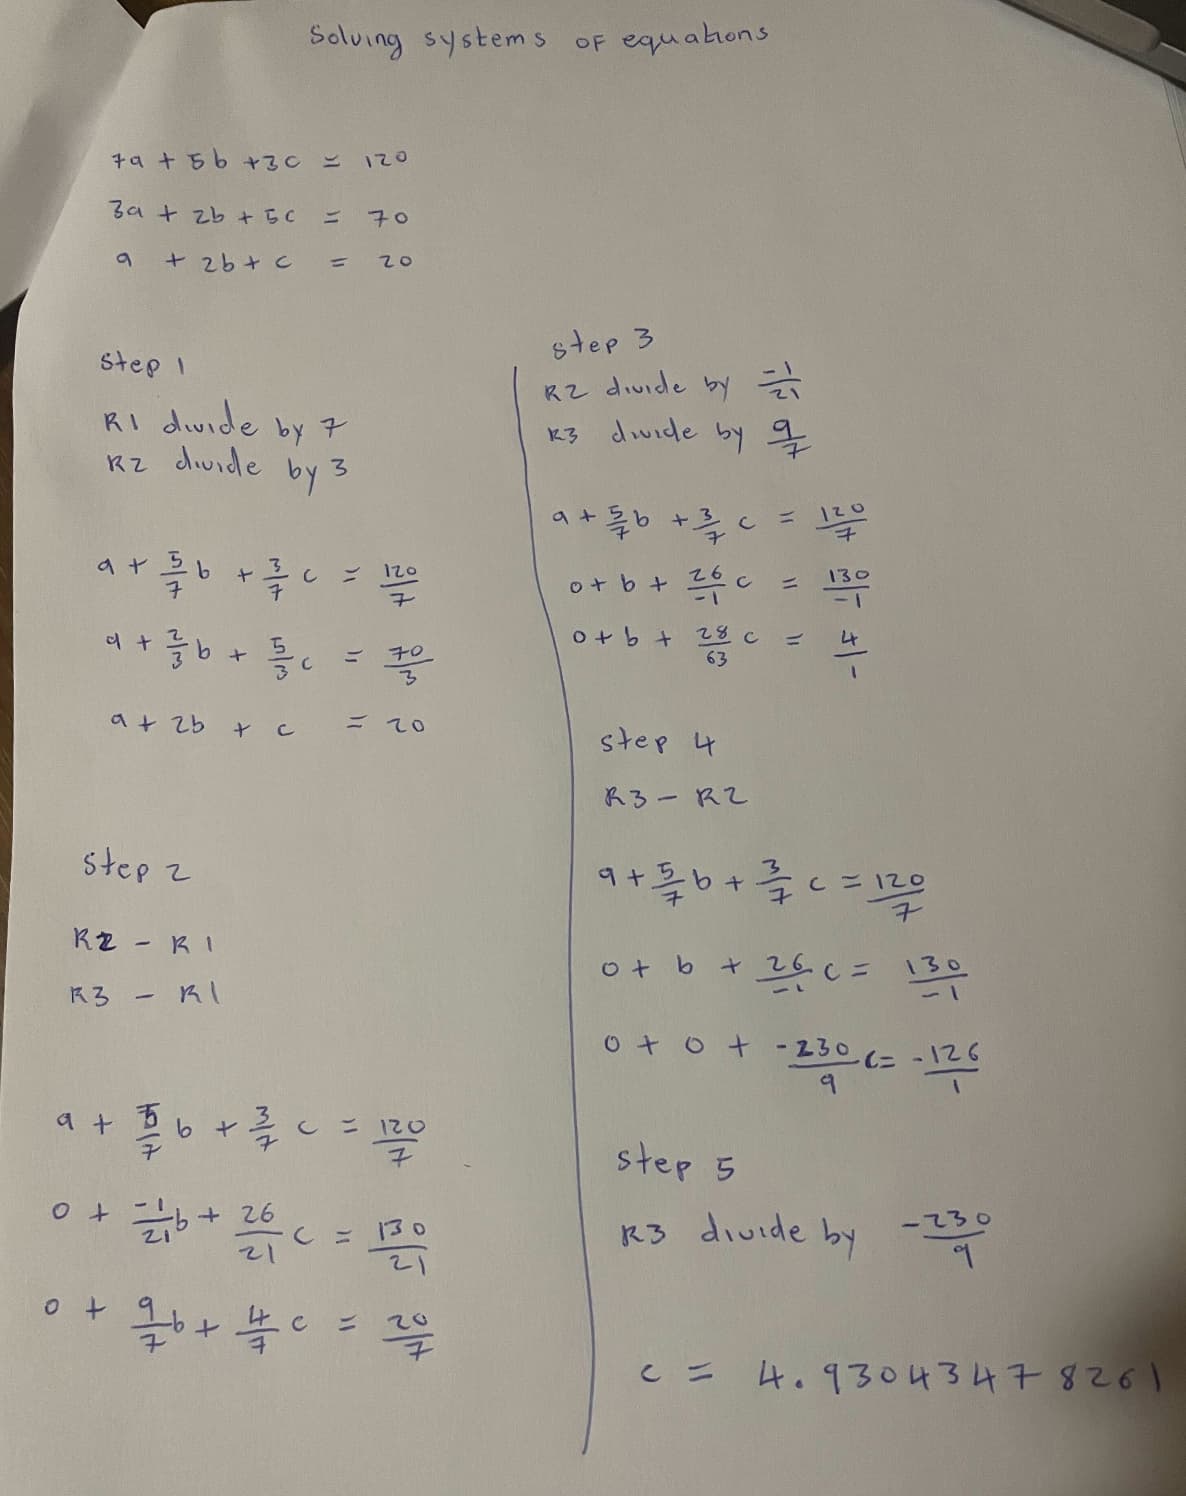 Solving systems OF equations
7a + 5b + 3c = 120
3a + 2b + 5c = 70
a + 2b + c = 20
Step 1
R1 divide by 7
R2 divide by 3
a + 5/7 b + 3/7 c = 120/7
a + 2/3 b + 5/3 c = 70/3
a + 2b + c = 20
Step 2
R2 - R1
R3 - R1
a + 5/7 b + 3/7 c = 120/7
0 + -1/21 b + 26/21 c = 130/21
0 + 9/7 b + 4/7 c = 20/7
step 3
R2 divide by -1/21
R3 divide by 9/7
a + 5/7 b + 3/7 c = 120/7
0 + b + 26/-1 c = 130/-1
0 + b + 28/63 c = 4/1
step 4
R3 - R2
a + 5/7 b + 3/7 c = 120/7
0 + b + 26/-1 c = 130/-1
0 + 0 + -230/9 c = -126/1
step 5
R3 divide by -230/9
c = 4.93043478261